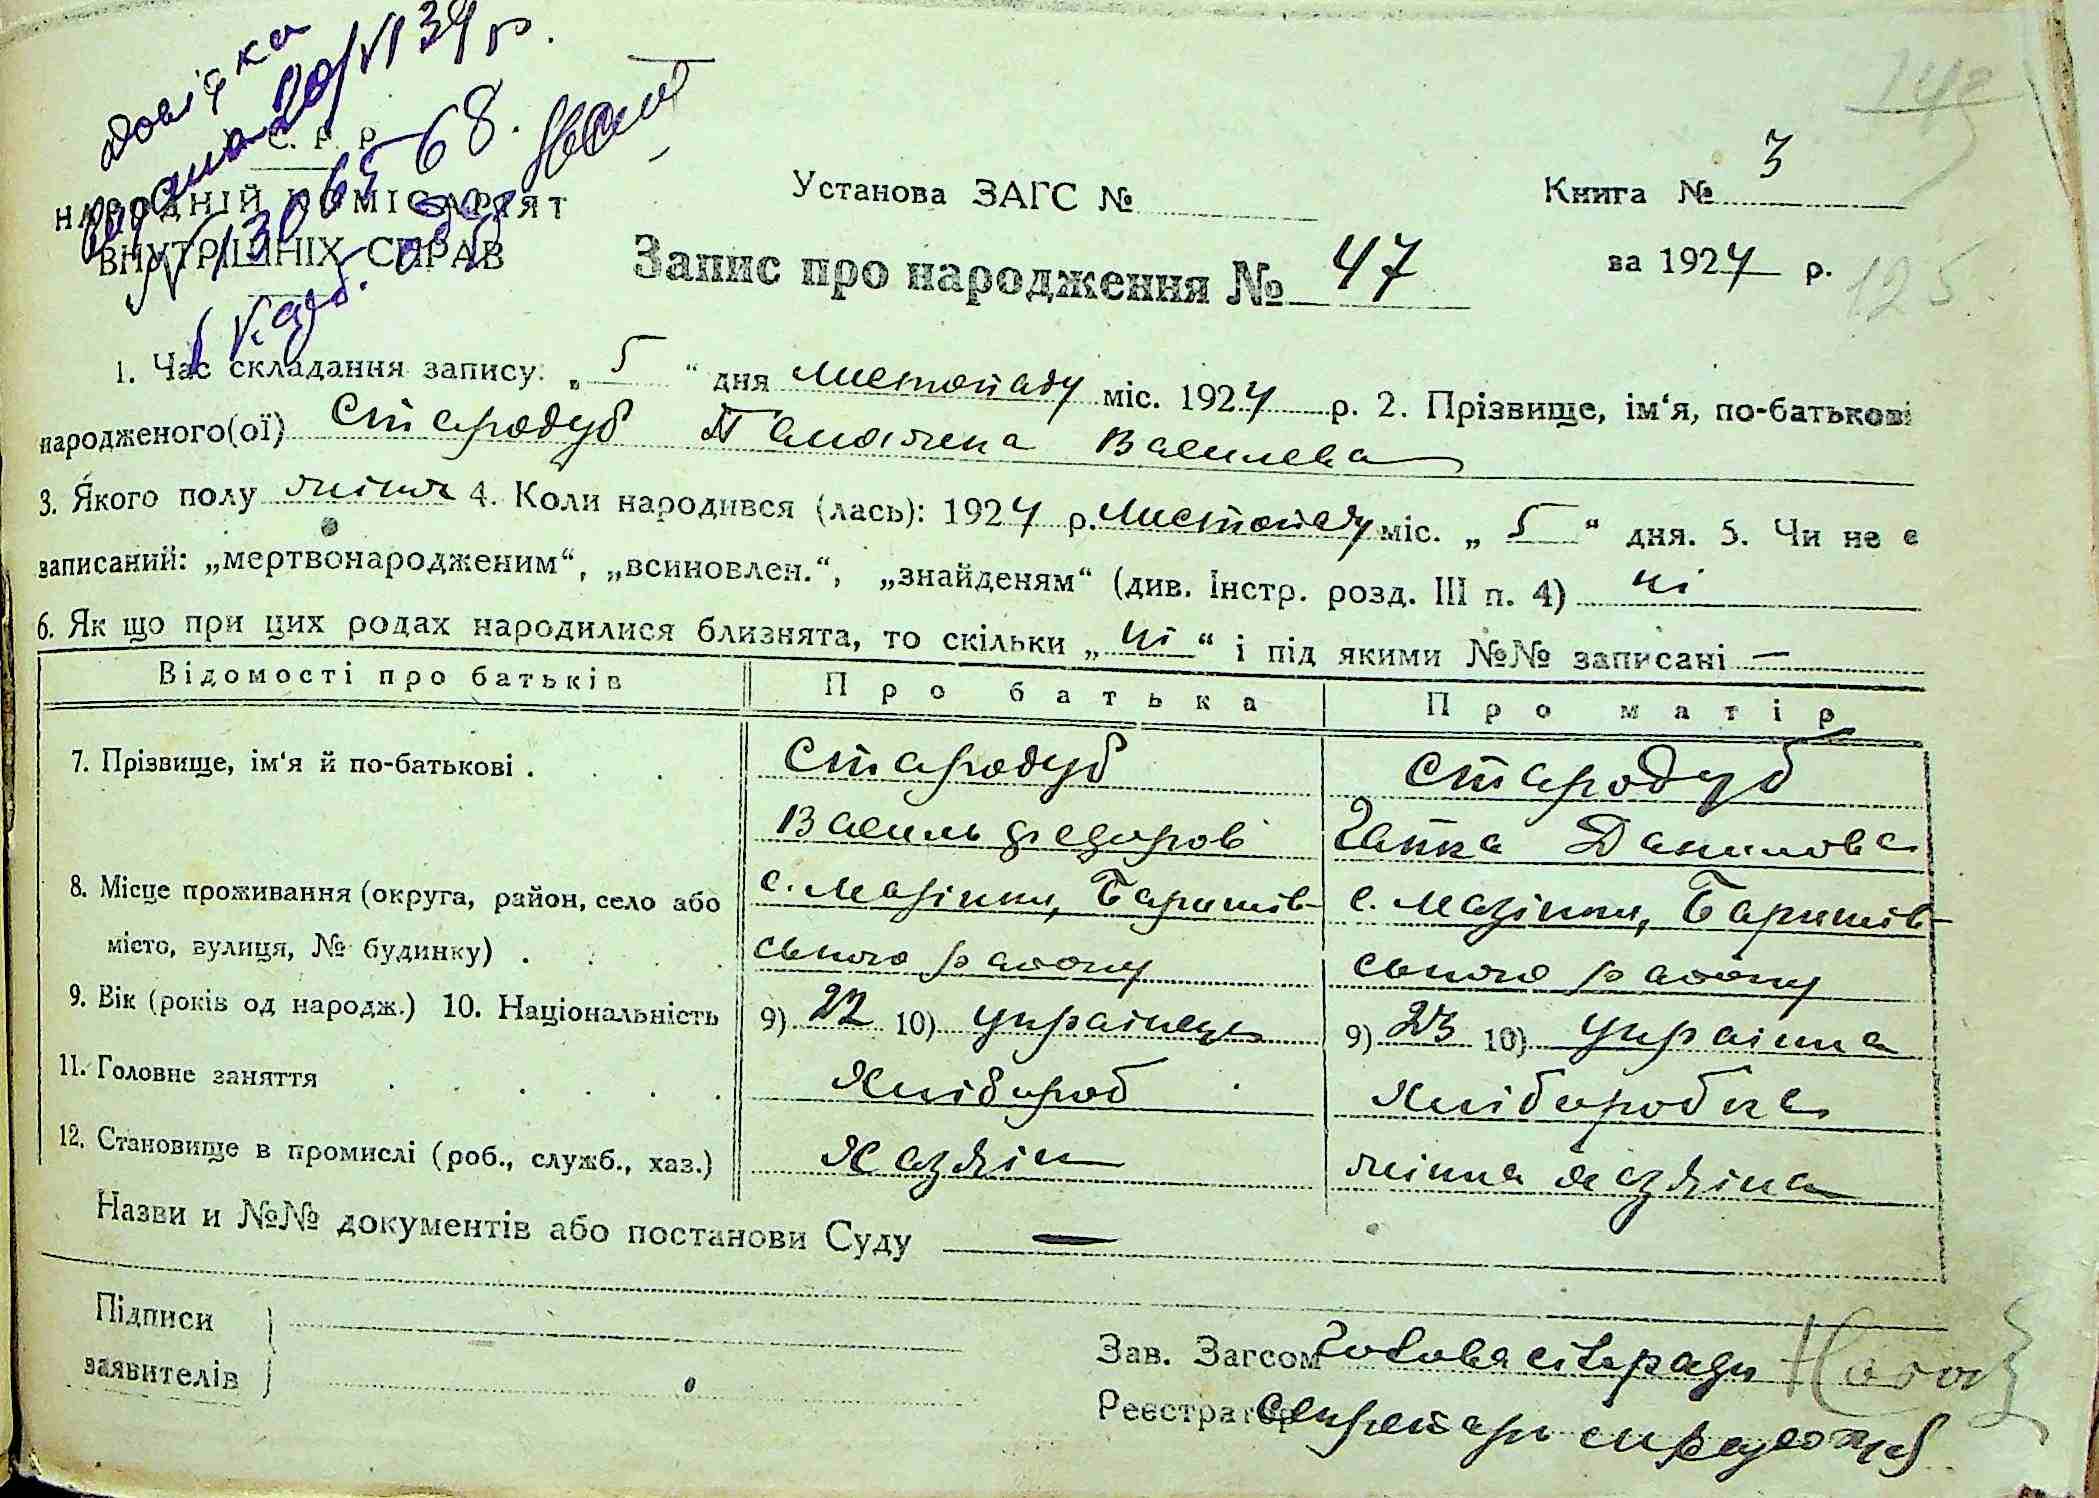 довідка
видана 20/VI 39 р.
С. Р. Р.
НАРОДНІЙ КОМІСАРІЯТ
ВНУТРІШНІХ СПРАВ
Установа ЗАГС №
Книга № 3
Запис про народження № 47
за 1924 р.
125
1. Час складання запису: „ 5 “ дня листопаду міс. 1924 р. 2. Прізвище, ім‘я, по-батькові
народженого(ої) Стародуб Василева
3. Якого полу жіноч 4. Коли народився (лась): 1924 р. листопаду міс. „ 5 “ дня. 5. Чи не є
записаний: „мертвонародженим“, „всиновлен.“, „знайденям“ (див. Інстр. розд. III п. 4) ні
6. Як що при цих родах народилися близнята, то скільки „ ні “ і під якими №№ записані —
Відомості про батьків Про батька Про матір
7. Прізвище, ім‘я й по-батькові . Стародуб Стародуб
Василь Федоров Ганка Данилова
8. Місце проживання (округа, район, село або с. Мазінки, Баришів- с. Мазінки, Баришів-
місто, вулиця, № будинку) . ського району ського району
9. Вік (років од народж.) 10. Національність 9) 22 10) українець 9) 23 10) українка
11. Головне заняття Хлібороб Хліборобка
12. Становище в промислі (роб., служб., хаз.) Хазяін жінка хазяіна
Назви и №№ документів або постанови Суду —
Підписи
заявителів
Зав. Загсом Голова сільради
Реєстратор Секретарь